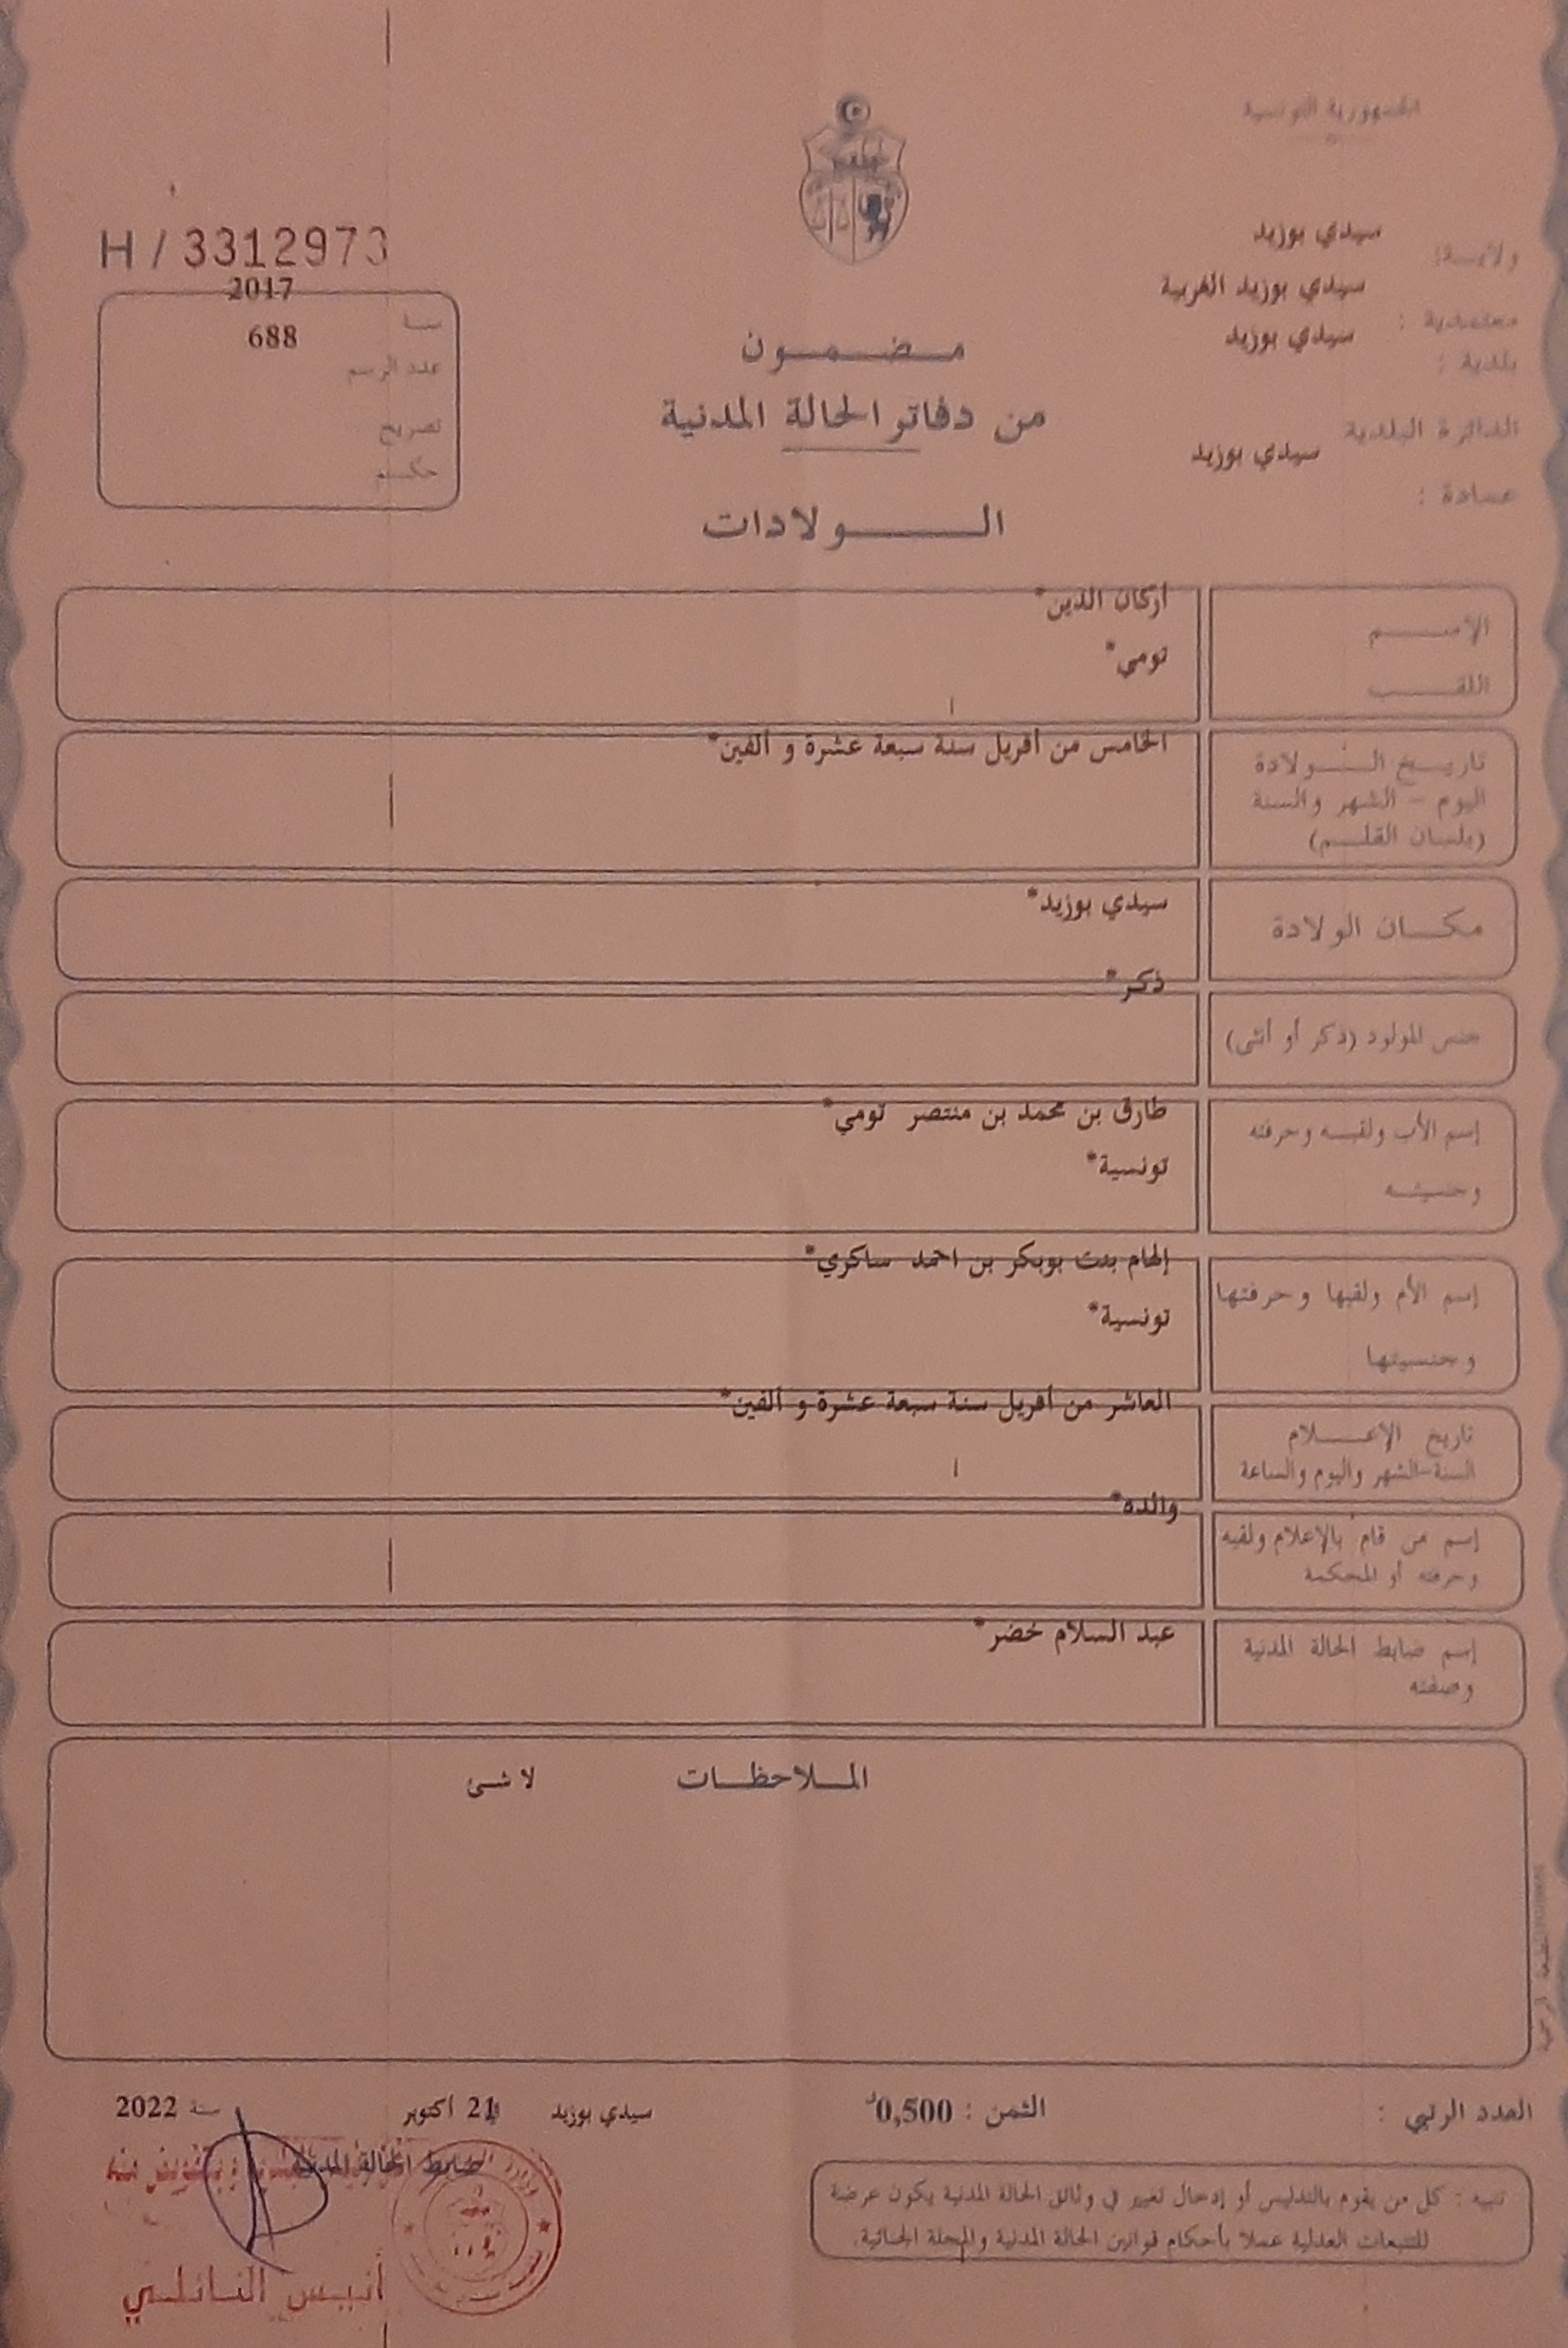 الجمهورية التونسية
H / 3312973
ولايـــة: سيدي بوزيد
معتمدية : سيدي بوزيد الغربية
بلدية : سيدي بوزيد
الدائرة البلدية سيدي بوزيد
عمادة :
2017
سنـــة
عدد الرسم 688
تصريح
حكـــم
مـضـمـون
من دفاتر الحالة المدنية
الـــولادات
الإســـم أركان الدين*
اللقـــب تومي*
تاريـــخ الـــولادة الخامس من أفريل سنة سبعة عشرة و ألفين*
اليوم - الشهر والسنة
(بلسان القلـــم)
مكـــان الولادة سيدي بوزيد*
جنس المولود (ذكر أو أنثى) ذكر*
إسم الأب ولقبـــه وحرفته طارق بن محمد بن منتصر تومي*
وجنسيتـــه تونسية*
إسم الأم ولقبها وحرفتها إلهام بنت بوبكر بن احمد ساكري*
وجنسيتها تونسية*
تاريخ الإعـــلام العاشر من أفريل سنة سبعة عشرة و ألفين*
السنة-الشهر واليوم والساعة
إسم من قام بالإعلام ولقبه والده*
وحرفته أو المحكمة
إسم ضابط الحالة المدنية عبد السلام خضر*
وصفته
المـــلاحظـــات لا شئ
العدد الرتبي :
الثمن : 0,500د
سيدي بوزيد 21 أكتوبر سنة 2022
ضابط الحالة المدنية
وبتفويض منه
أنيس النائلي
تنبيه : كل من يقوم بالتدليس أو إدخال تغيير في وثائق الحالة المدنية يكون عرضة
للتتبعات العدلية عملا بأحكام قوانين الحالة المدنية والمجلة الجنائية.